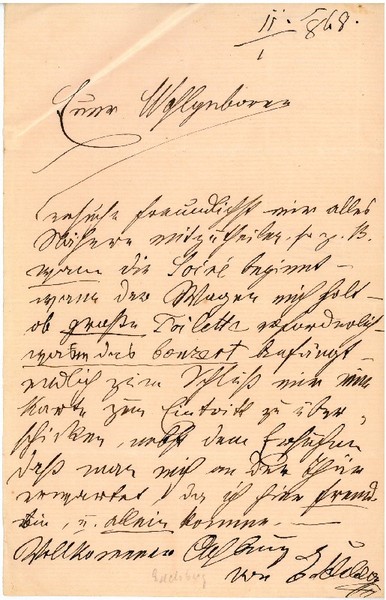 11. 868.
1
Euer Wohlgeboren
ersuche freundlichst mir alles
Nähere mitzutheilen, so z. B.
wann die Soireé beginnt –
wann der Wagen mich holt –
ob große Toilette erforderlich –
wann das Conzert anfängt
endlich zum Schluß mir eine
Karte zum Eintritt zu über-
schicken, nebst dem Ersuchen
daß man mich an der Thür
erwartet, da ich hier fremd
bin, u. allein komme. –
Vollkommener Achtung
von